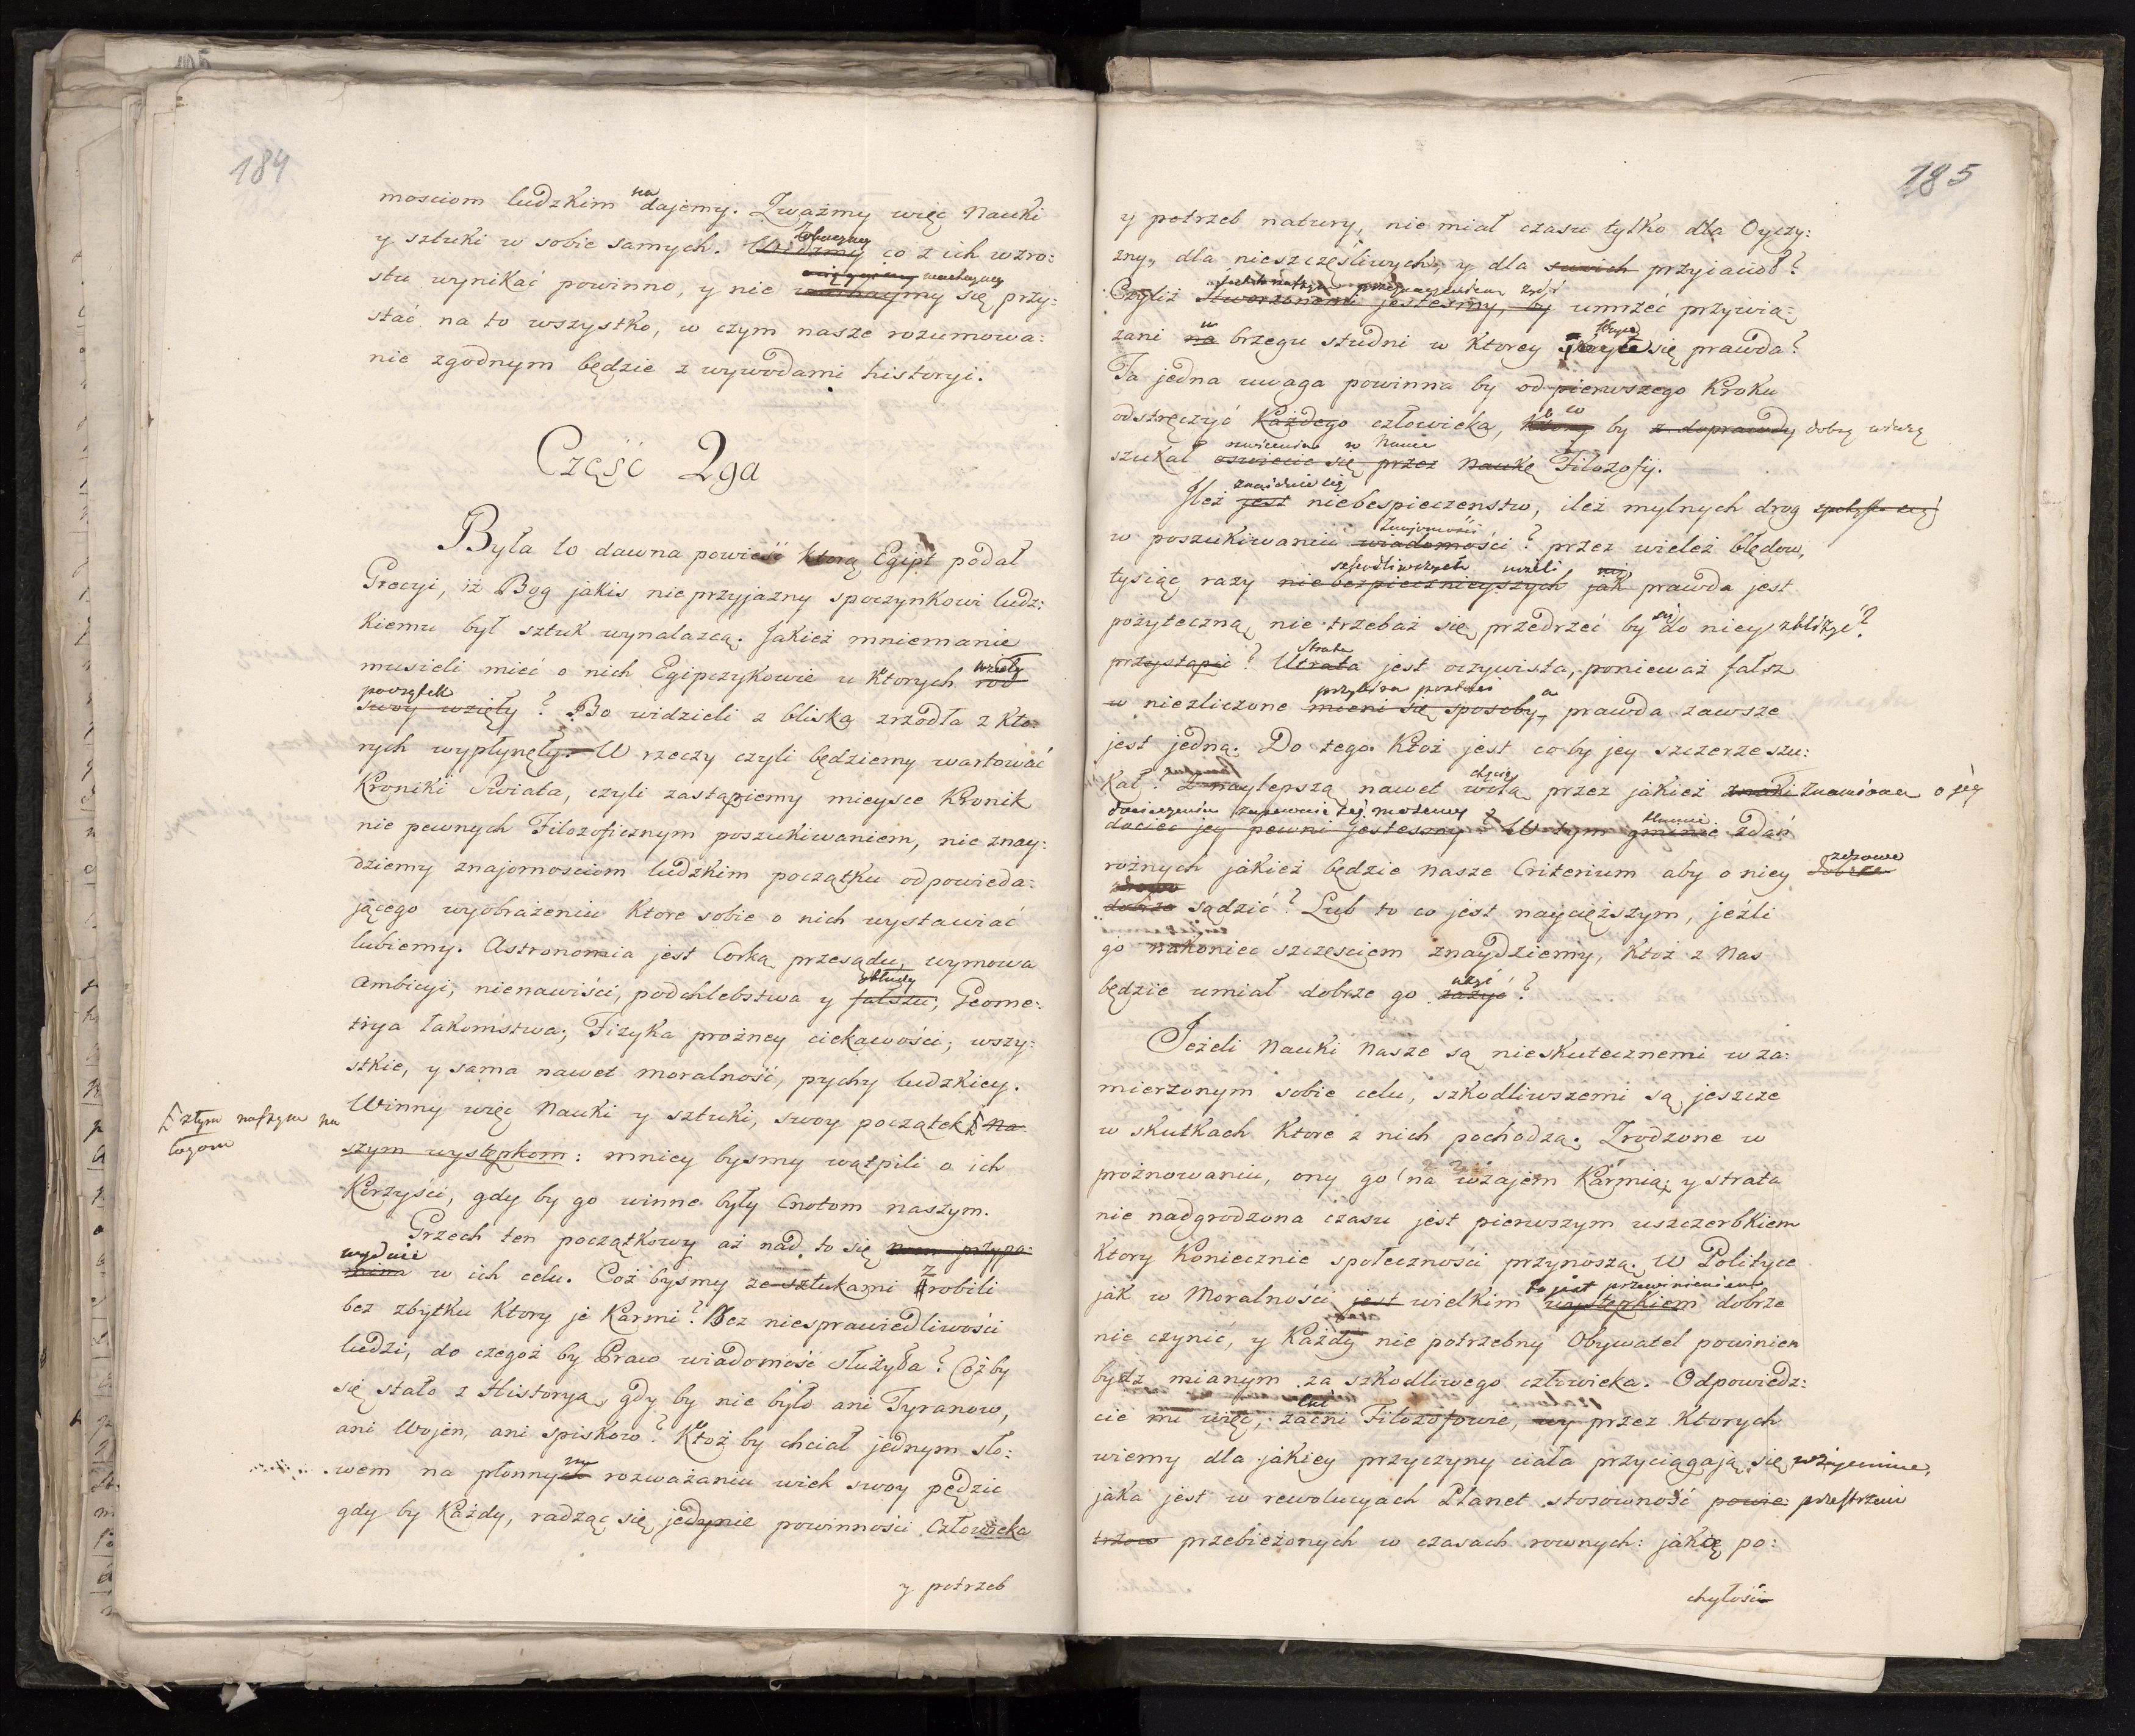 184
mosciom ludzkim nadajemy. Zważmy więc Nauki
y sztuki w sobie samych. Widzmy co z ich wzro:
stu wynikać powinno, y nie się przy:
stać na to wszystko, w czym nasze rozumowa:
nie zgodnym będzie z wywodami historyi.
Część 2ga
Była to dawna powieść ktorą Egipt podał
Grecyi, iż Bog jakis nieprzyjazny spoczynkowi ludz:
kiemu był sztuk wynalazcą. Jakież mniemanie
wzięły
musieli mieć o nich Egipczykowie u ktorych rod
początek
swoy wzięły? Bo widzieli z bliska zrzodła z kto:
rych wypłynęły. W rzeczy czyli będziemy wartować
Kroniki Swiata, czyli zastąpiemy mieysce Kronik
nie pewnych Filozoficznym poszukiwaniem, nie znay:
dziemy znajomosciom ludzkim początku odpowieda:
jącego wyobrażeniu ktore sobie o nich wystawiać
lubiemy. Astronomia jest Corką przesądu, wymowa
obłudy
Ambicyi, nienawiści, podchlebstwa y fałszu; Geome:
trya łakomstwa; Fizyka prożney ciekawości; wszy:
stkie, y sama nawet moralność, pychy ludzkiey.
Winny więc Nauki y sztuki, swoy początek na:
złym naszym na
łogom
szym występkom: mniey bysmy wątpili o ich
Korzyści, gdy by go winne były Cnotom naszym.
Grzech ten początkowy aż nad to się nam przypo:
wydaie
mina w ich celu. Coż bysmy ze sztukami zrobili
bez zbytku ktory je Karmi? Bez niesprawiedliwości
ludzi, do czegoż by Praw wiadomość służyła? Coż by
się stało z Historyą, gdy by nie było ani Tyranow,
ani Wojen, ani spiskow? Ktoż by chciał jednym sło:
wem na płonnym rozważaniu wiek swoy pędzić
gdy by Każdy, radząc się jedynie powinności Człowieka
y potrzeb
185
y potrzeb natury, nie miał czasu tylko dla Oyczy:
zny, dla nieszczęśliwych, y dla swoich przyiacioł?
Czyliż stworzonemi jestesmy, by umrzeć przywią:
zani na brzegu studni w ktorey skryła się prawda?
Ta jedna uwaga powinna by od pierwszego Kroku
odstręczyć Każdego człowieka, ktory by z doprawdy dobrą wiarą
oswiecenia w Nauce
szukał oswiecić się przez Naukę Filozofij.
znaidzie się
Ileż jest niebespieczenstw, ileż mylnych drog
Znajomości
w poszukiwaniu wiadomości? przez wieleż błędow,
szkodliwszych niżeli
tysiąc razy niebezpiecznieyszych jak prawda jest
pożyteczną, nie trzebaż się przedrzeć by się do niey zbliżyć?
Strata
przystąpić? Utrata jest oczywista, ponieważ fałsz
przybiera postaci a
w niezliczone mieni się sposoby, prawda zawsze
jest jedną. Do tego. Ktoż jest co by jey szczerze szu:
chęcią
kał? z naylepszą nawet wolą przez jakież znaki znamiona o jéj
dociec jey pewni jestesmy? W tym gminie zdań
rożnych jakież będzie nasze Criterium aby o niey dobrze
zdrowo
dobrze sądzić? Lub to co jest naycięższym, jeźli
go nakoniec szczesciem znaydziemy, ktoż z Nas
użyć
będzie umiał dobrze go zażyć?
Jeżeli Nauki Nasze są nieskutecznemi w za:
mierzonym sobie celu, szkodliwszemi są jeszcze
w skutkach ktore z nich pochodzą. Zrodzone w
prożnowaniu, ony go na wzajem Karmią; y strata
nie nadgrodzona czasu jest pierwszym uszczerbkiem
ktory Koniecznie społeczności przynoszą. W Polityce
to jest przewinieniem
jak w Moralności jest wielkim występkiem dobrze
nie czynić, y Każdy nie potrzebny Obywatel powinien
bydz mianym za szkodliwego człowieka. Odpowiedz:
cie mi więc, zacni Filozofowie, wy przez ktorych
wiemy dla jakiey przyczyny ciała przyciągają się wzajemnie,
jaka jest w rewolucyach Planet stosowność powie: przestrzeni
trzow przebieżonych w czasach rownych: jaką po:
chyłości